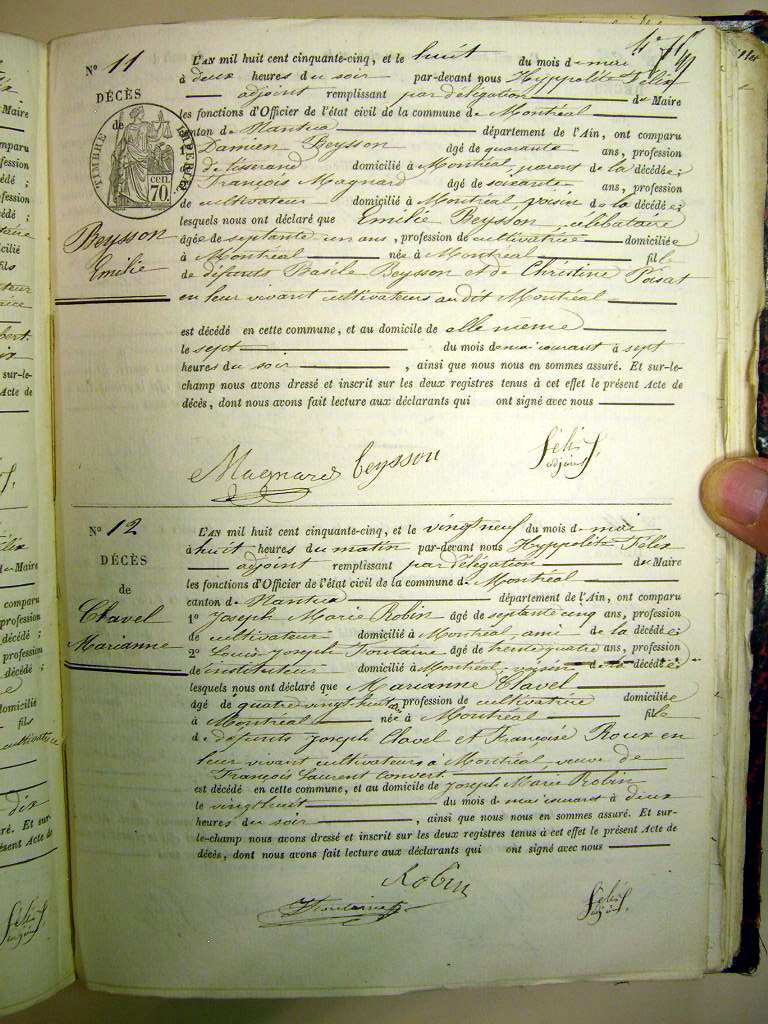 N° 11
DÉCÈS
de
TIMBRE IMPERIAL
70 cen.
Beysson
Emilie
L'AN mil huit cent cinquante-cinq, et le huit du mois de mai
à deux heures du soir par-devant nous Hyppolite Félix
adjoint remplissant par délégation du Maire
les fonctions d'Officier de l'état civil de la commune de Montréal
canton de Nantua département de l'Ain, ont comparu
Damien Beysson âgé de quarante ans, profession
de tisserand domicilié à Montréal, parent de la décédée;
François Magnard âgé de soixante ans, profession
de cultivateur domicilié à Montréal voisin de la décédée;
lesquels nous ont déclaré que Emilie Beysson, célibataire
âgée de septante un ans, profession de cultivatrice domiciliée
à Montréal née à Montréal fille
de défunts Basile Beysson et de Christine Poisat
en leur vivant cultivateurs au dit Montréal
est décédé en cette commune, et au domicile de elle même
le sept du mois de mai courant à sept
heures du soir, ainsi que nous nous en sommes assuré. Et sur-le-
champ nous avons dressé et inscrit sur les deux registres tenus à cet effet le présent Acte de
décès, dont nous avons fait lecture aux déclarants qui ont signé avec nous
Magnard beysson félix
adjoint
N° 12
DÉCÈS
de
Clavel
Marianne
L'AN mil huit cent cinquante-cinq, et le vingt neuf du mois de mai
à huit heures du matin par-devant nous Hyppolite Félix
adjoint remplissant par délégation du Maire
les fonctions d'Officier de l'état civil de la commune de Montréal
canton de Nantua département de l'Ain, ont comparu
1° Joseph Marie Robin âgé de septante cinq ans, profession
de cultivateur domicilié à Montréal, ami de la décédée;
2° Louis Joseph Fontaine âgé de trente quatre ans, profession
de instituteur domicilié à Montréal, voisin de la décédée;
lesquels nous ont déclaré que Marianne Clavel
âgé de quatre vingt huit ans profession de cultivatrice domiciliée
à Montréal née à Montréal fille
de défunts Joseph Clavel et Françoise Roux en
leur vivant cultivateurs à Montréal, veuve de
François Laurent Convert.
est décédé en cette commune, et au domicile de Joseph Marie Robin
le vingt huit du mois de mai courant à deux
heures du soir, ainsi que nous nous en sommes assuré. Et sur-
le-champ nous avons dressé et inscrit sur les deux registres tenus à cet effet le présent Acte de
décès, dont nous avons fait lecture aux déclarants qui ont signé avec nous
Robin
Fontaine félix
adjoint